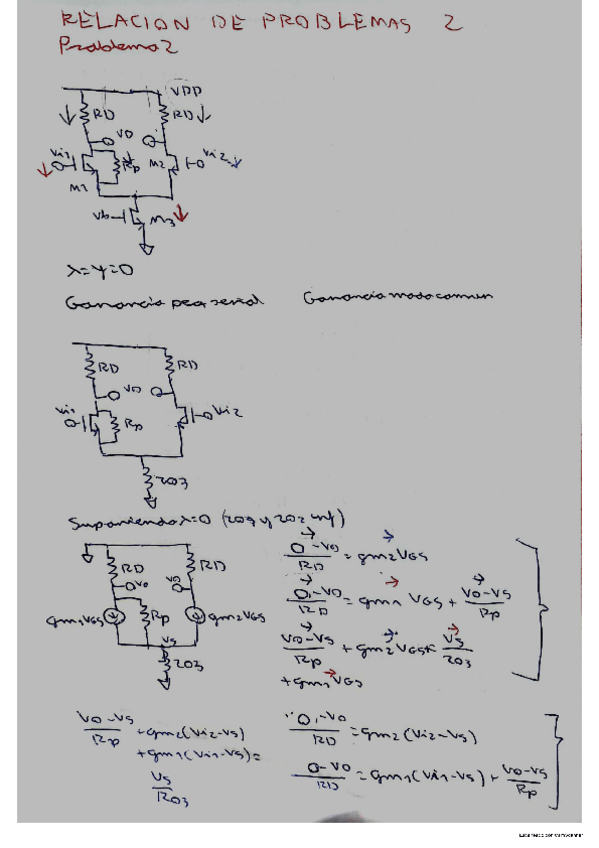 RELACION DE PROBLEMAS 2
Problema 2
VDD
RD RD
VO
Vi1 Rp M2 Vi2
M1
Vb M3
λ=γ=0
Ganancia peq señal Ganancia modo comun
RD RD
VO
Vi1 Rp Vi2
ro3
Suponiendo λ=0 (ro1 y ro2 inf)
RD RD
Vo VO
gm1VGS Rp gm2VGS
Vs
ro3
0-VO/RD = gm2VGS
0-VO/RD = gm1 VGS + VO-VS/Rp
VO-VS/Rp + gm2VGS = VS/ro3
+gm1VGS
VO-VS/Rp + gm2(Vi2-VS)
+gm1(Vi1-VS)=
VS/Ro3
0-VO/RD = gm2(Vi2-VS)
0-VO/RD = gm1(Vi1-VS) + VO-VS/Rp